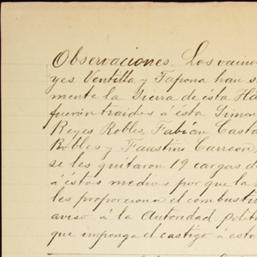 Observaciones. Los vecinos
yes Ventilla y Tapona han s
mente la Sierra de ésta Ha
fueron traidos á ésta Simon
Reyes Robles, Fabián Casta
Robles y Faustino Carreon,
se les quitaron 19 cargas d
á éstos medios por que la
les proporciona el combusti
aviso á la Autoridad polít
que imponga el castigo á esto